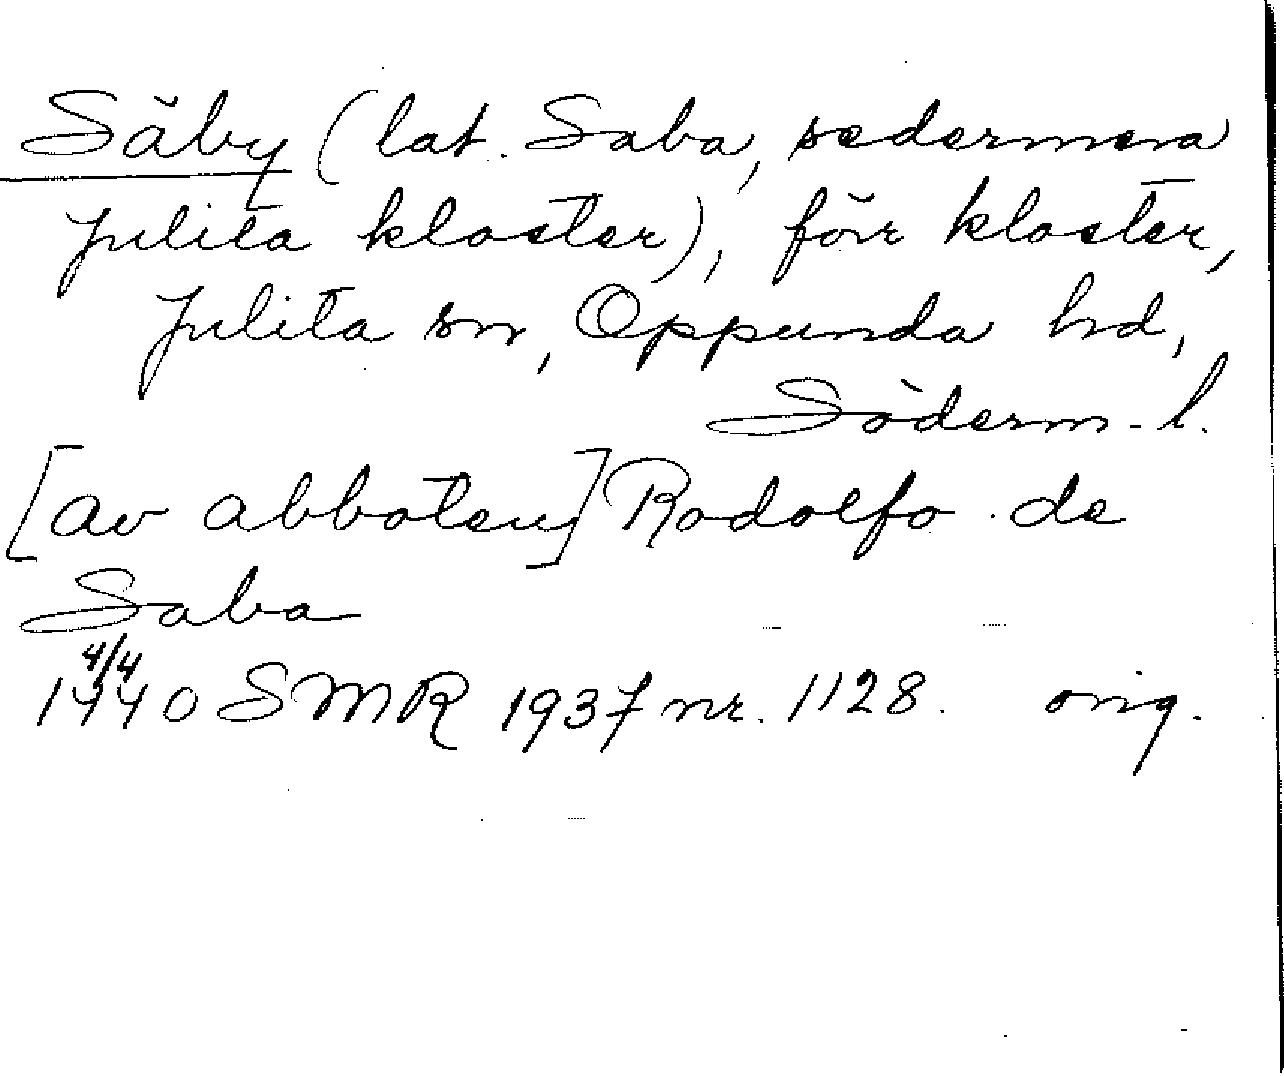 Säby (lat. Saba, sedermera
Julita kloster), förr kloster,
Julita sn, Oppunda hd,
Söderm. l.
[av abboten] Rodolfo de
Saba
4/4
1440 SMR 1937 nr. 1128. orig.